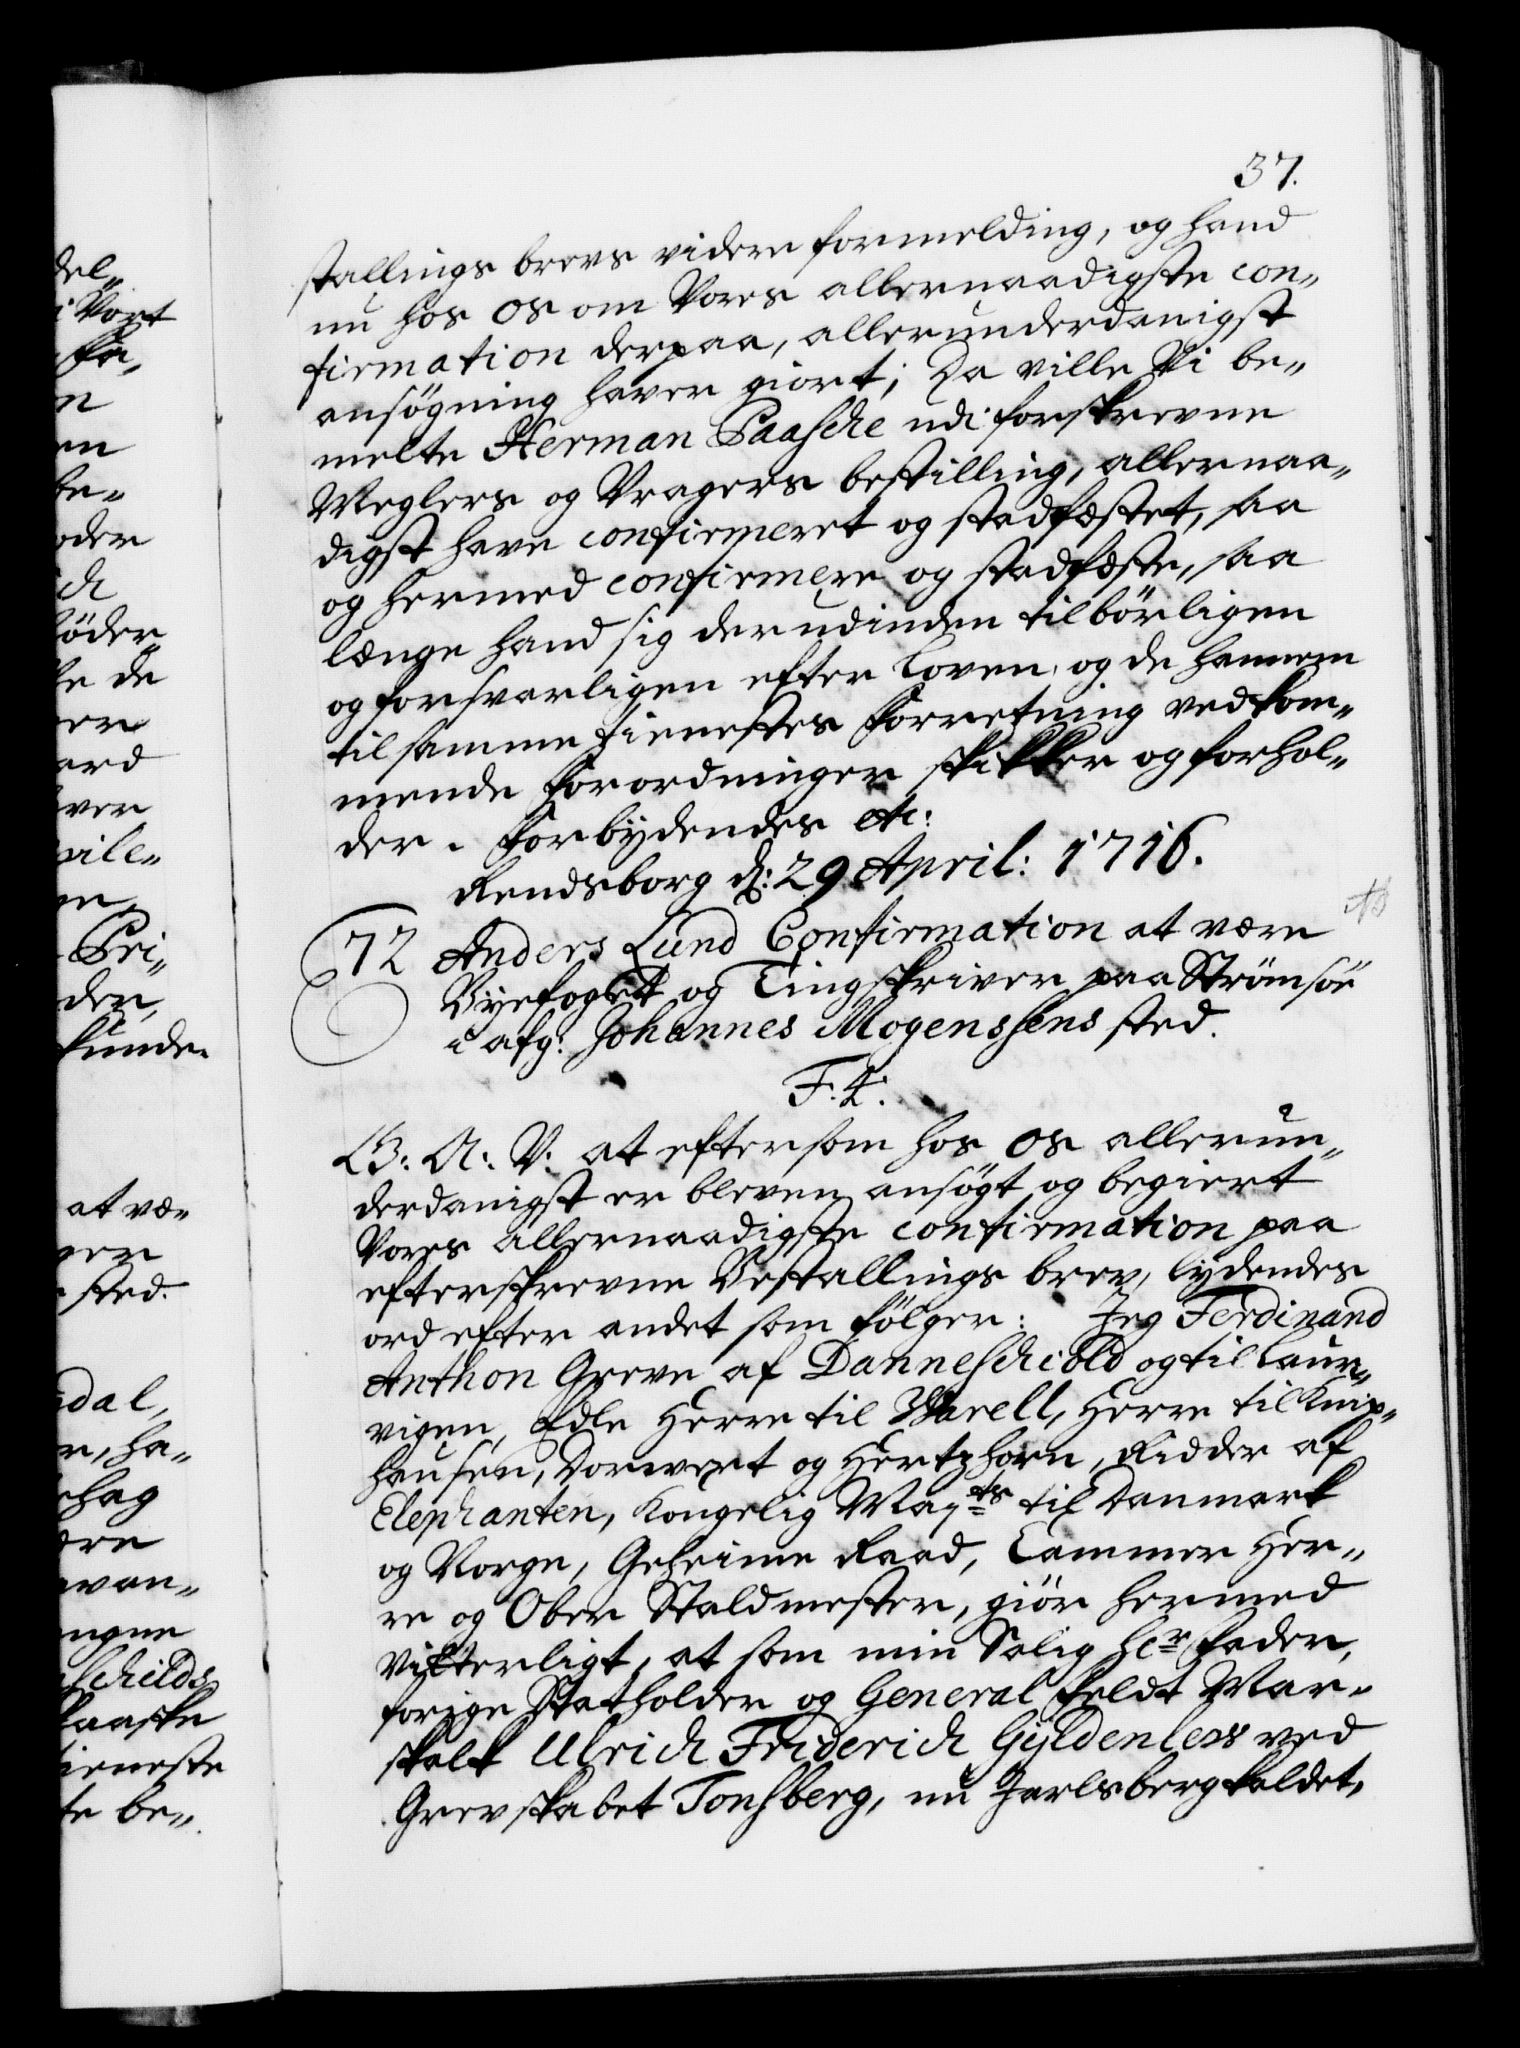 37.
stallings brevs videre formelding, og hand
nu hos os om Vores allernaadigste con„
firmation derpaa, allerunderdanigst
ansögning haver giort; Da ville Vi be„
melte Herman Paasche udi forskrevne
Meglers og Vragers bestilling, allernaa„
digst have confirmeret og stadfæstet, saa
og hermed confirmere og stadfæste, saa
længe hand sig derudinden tilbörligen
og forsvarligen efter Loven, og de hannem
til samme tienestes forretning vedkom„
mende forordninger skikker og forhol„
der. Forbydendes etc:
Rendsborg d: 29 April: 1716.
72 Anders Lund Confirmation at være
Byefoget og Tingskriver paa Strömsöe
i afg: Johannes Mogensens sted.
F: 4:
G: A: V: at eftersom hos os allerun„
derdanigst er bleven ansögt og begiert
Vores allernaadigste confirmation paa
efterskrevne Bestallings brev, lydendes
ord efter andet som fölger: Jeg Ferdinand
Anthon Greve af Danneschiold og til Laur„
vigen, Edle Herre til Warell, Herre til Knip„
hausen, Dorwert og Hertzhorn, Ridder af
Elephanten, Kongelig Mayts til Danmark
og Norge, Geheime Raad, Cammer Her„
re og Ober Staldmester, giör hermed
vitterligt, at som min Salig Hr Fader,
forige Statholder og General Feldt Mar„
skalk Ulrich Friderich Gyldenlew ved
Grevskabet Tonsberg, nu Jarlsberg kaldet,
del„
i Vort
fa„
n
en
be„
oder
ch
öder
e de
er
ard
ver
vile„
m
Pri„
den,
kunde.
at væ„
ger
sted.
dal,
r, ha„
hag
ære
van„
ngne
Schilds
Paaske
tieneste
te be„